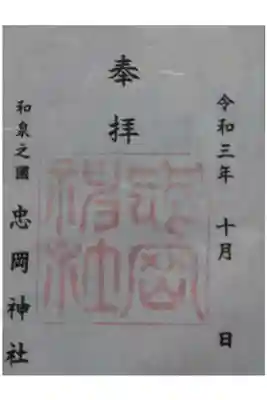 令和三年 十月 日
奉拝
忠岡神社
和泉之國 忠岡神社